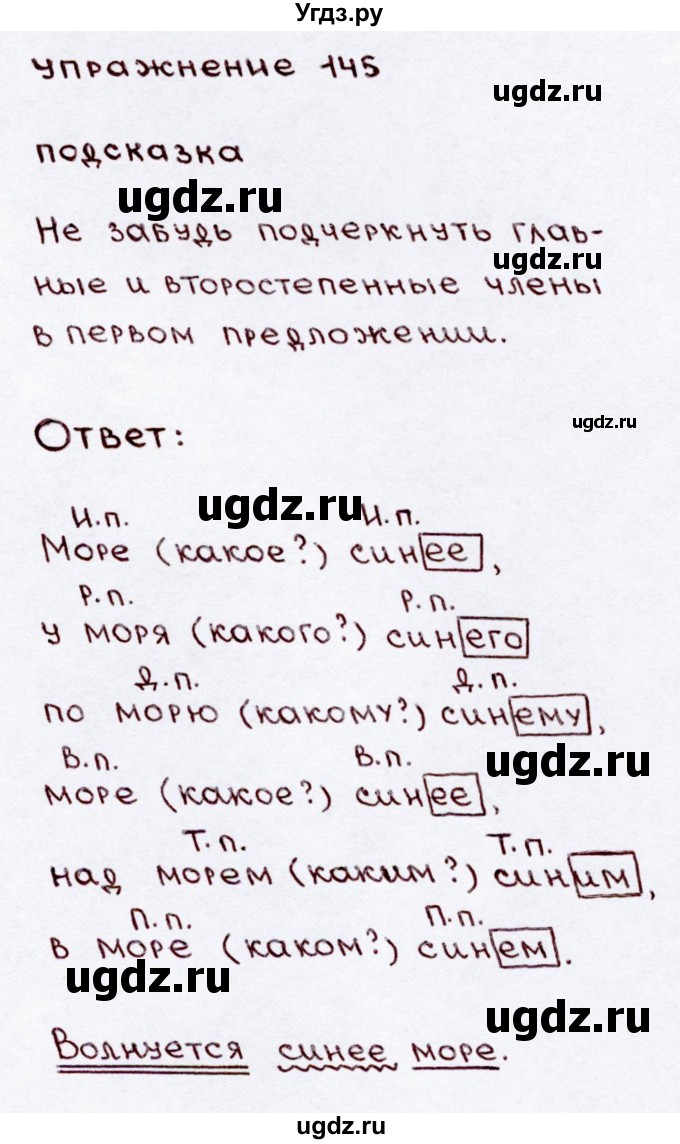 Угдз.ру
упражнение 145
ugdz.ru
подсказка
ugdz.ru
Не забудь подчеркнуть глав-
ugdz.ru
ные и второстепенные члены
в первом предложении.
ugdz.ru
Ответ:
ugdz.ru
И.п. И.п.
Море (какое?) синее,
Р.п. Р.п.
у моря (какого?) синего
Д.п. Д.п.
по морю (какому?) синему,
ugdz.ru
В.п. В.п.
море (какое?) синее,
Т.п. Т.п.
над морем (каким?) синим,
П.п. П.п.
в море (каком?) синем.
ugdz.ru
ugdz.ru
Волнуется синее море.
ugdz.ru